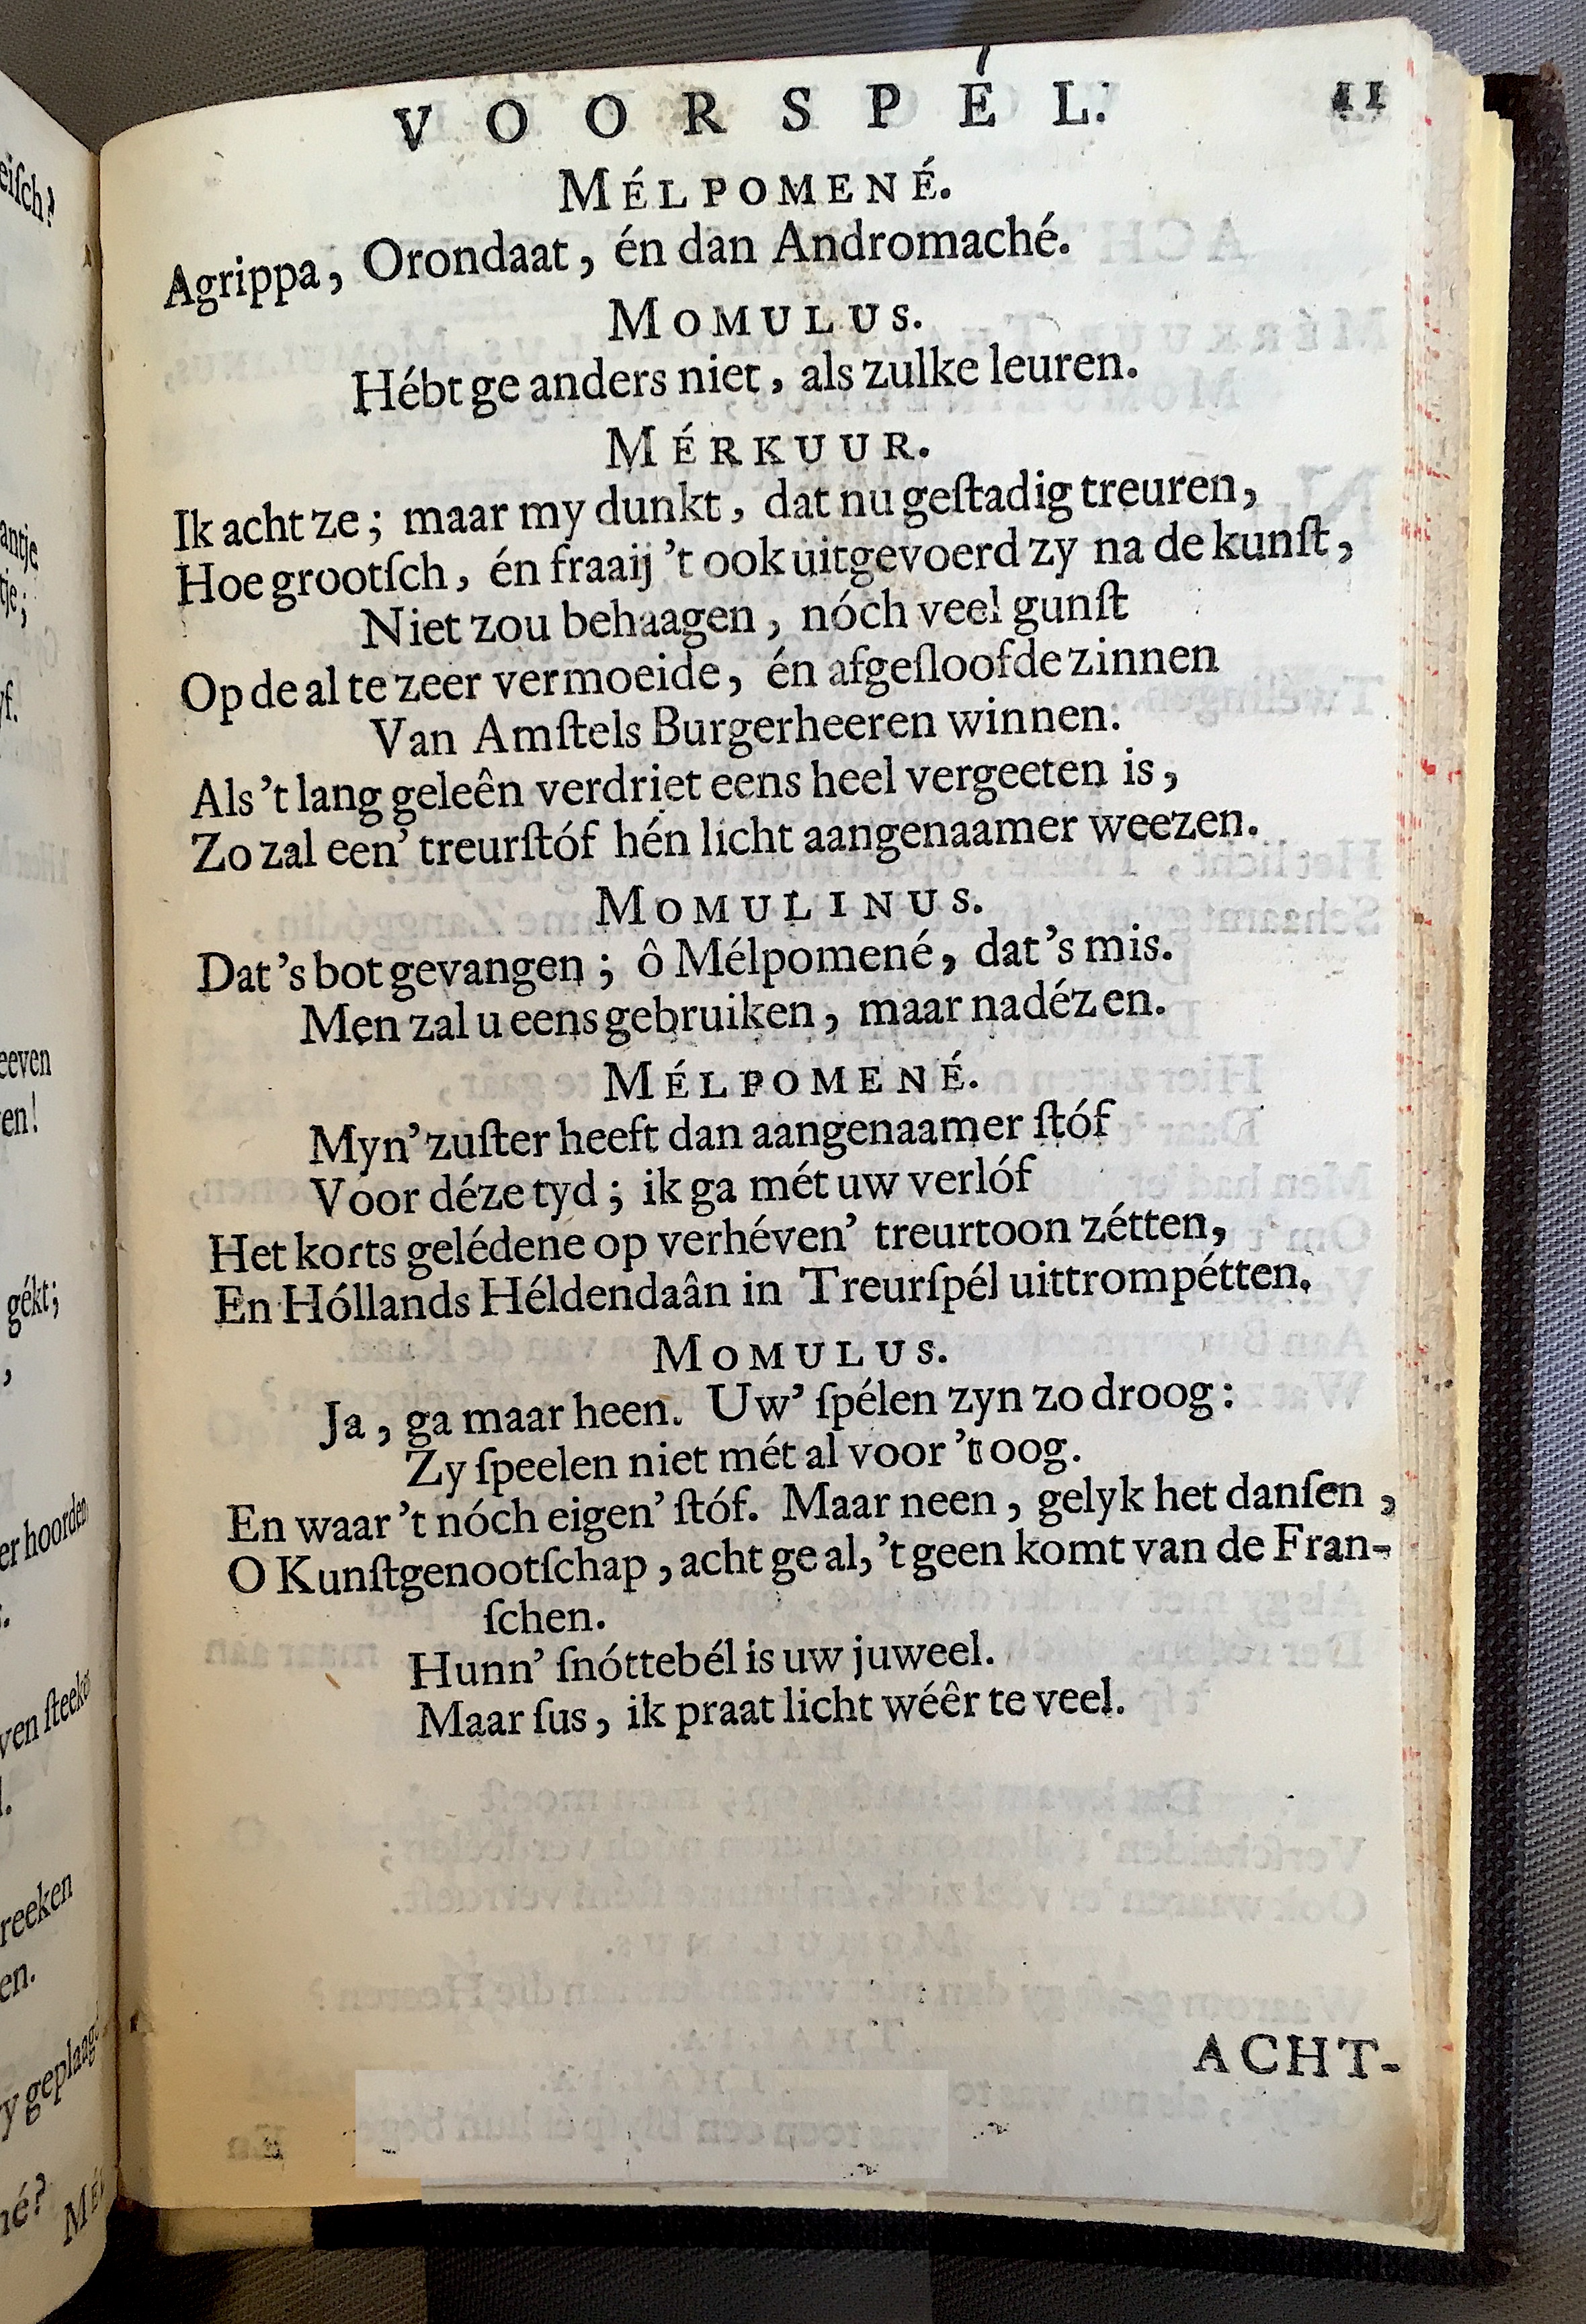 VOORSPÉL. 11
MÉLPOMENÉ.
Agrippa, Orondaat, én dan Andromaché.
MOMULUS.
Hébt ge anders niet, als zulke leuren.
MÉRKUUR.
Ik acht ze; maar my dunkt, dat nu geſtadig treuren,
Hoe grootſch, én fraaij 't ook uitgevoerd zy na de kunſt,
Niet zou behaagen, nóch veel gunſt
Op de al te zeer vermoeide, én afgeſloofde zinnen
Van Amſtels Burgerheeren winnen.
Als 't lang geleên verdriet eens heel vergeeten is,
Zo zal een' treurſtóf hén licht aangenaamer weezen.
MOMULINUS.
Dat 's bot gevangen; ô Mélpomené, dat 's mis.
Men zal u eens gebruiken, maar nadézen.
MÉLPOMENÉ.
Myn' zuſter heeft dan aangenaamer ſtóf
Voor déze tyd; ik ga mét uw verlóf
Het korts gelédene op verhéven' treurtoon zétten,
En Hóllands Héldendaân in Treurſpél uittrompétten.
MOMULUS.
Ja, ga maar heen. Uw' ſpélen zyn zo droog:
Zy ſpeelen niet mét al voor 't oog.
En waar 't nóch eigen' ſtóf. Maar neen, gelyk het danſen,
O Kunſtgenootſchap, acht ge al, 't geen komt van de Fran-
ſchen.
Hunn' ſnóttebél is uw juweel.
Maar ſus, ik praat licht wéêr te veel.
ACHT-